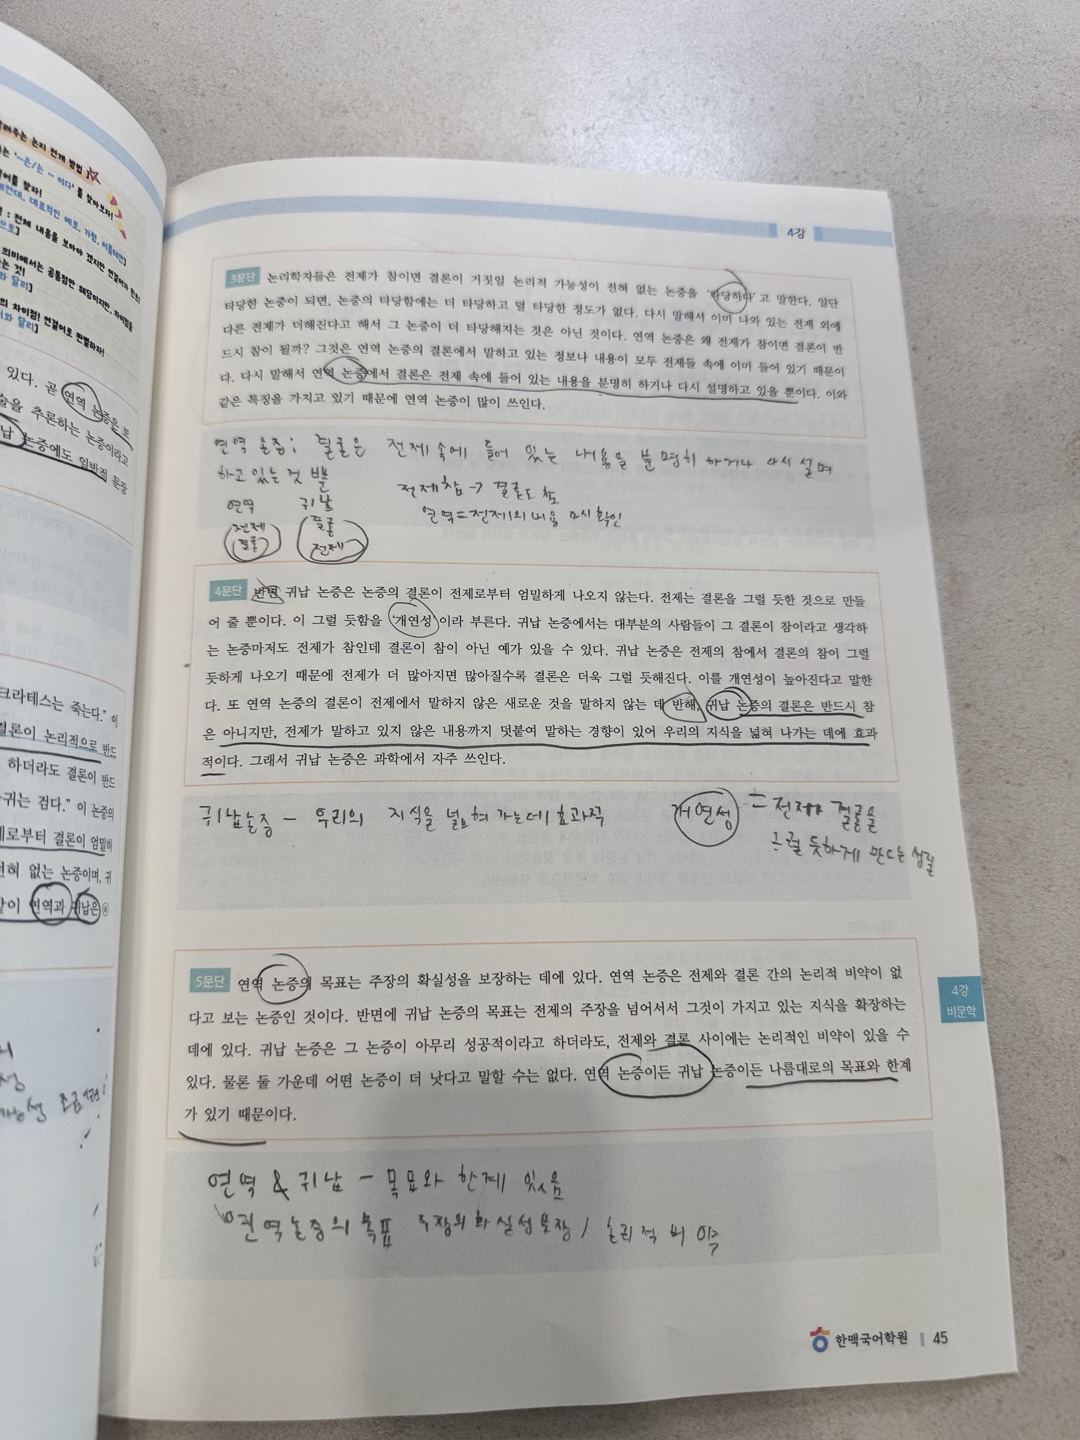 4강
3문단 논리학자들은 전제가 참이면 결론이 거짓일 논리적 가능성이 전혀 없는 논증을 '타당하다'고 말한다. 일단
타당한 논증이 되면, 논증의 타당함에는 더 타당하고 덜 타당한 정도가 없다. 다시 말해서 이미 나와 있는 전제 외에
다른 전제가 더해진다고 해서 그 논증이 더 타당해지는 것은 아닌 것이다. 연역 논증은 왜 전제가 참이면 결론이 반
드시 참이 될까? 그것은 연역 논증의 결론에서 말하고 있는 정보나 내용이 모두 전제들 속에 이미 들어 있기 때문이
다. 다시 말해서 연역 논증에서 결론은 전제 속에 들어 있는 내용을 분명히 하거나 다시 설명하고 있을 뿐이다. 이와
같은 특징을 가지고 있기 때문에 연역 논증이 많이 쓰인다.
연역 논증; 결론은 전제 속에 들어 있는 내용을 분명히 하거나 다시 설명
하고 있는 것 뿐
전제 참 → 결론도 참
연역 귀납
연역 = 전제의 내용 다시 확인
전제 결론
결론 전제
4문단 반면 귀납 논증은 논증의 결론이 전제로부터 엄밀하게 나오지 않는다. 전제는 결론을 그럴 듯한 것으로 만들
어 줄 뿐이다. 이 그럴 듯함을 '개연성'이라 부른다. 귀납 논증에서는 대부분의 사람들이 그 결론이 참이라고 생각하
는 논증마저도 전제가 참인데 결론이 참이 아닌 예가 있을 수 있다. 귀납 논증은 전제의 참에서 결론의 참이 그럴
듯하게 나오기 때문에 전제가 더 많아지면 많아질수록 결론은 더욱 그럴 듯해진다. 이를 개연성이 높아진다고 말한
다. 또 연역 논증의 결론이 전제에서 말하지 않은 새로운 것을 말하지 않는 데 반해, 귀납 논증의 결론은 반드시 참
은 아니지만, 전제가 말하고 있지 않은 내용까지 덧붙여 말하는 경향이 있어 우리의 지식을 넓혀 나가는 데에 효과
적이다. 그래서 귀납 논증은 과학에서 자주 쓰인다.
귀납논증 - 우리의 지식을 넓혀 가는데 효과적 개연성 = 전제가 결론을
그럴 듯하게 만드는 성질
5문단 연역 논증의 목표는 주장의 확실성을 보장하는 데에 있다. 연역 논증은 전제와 결론 간의 논리적 비약이 없
다고 보는 논증인 것이다. 반면에 귀납 논증의 목표는 전제의 주장을 넘어서서 그것이 가지고 있는 지식을 확장하는
데에 있다. 귀납 논증은 그 논증이 아무리 성공적이라고 하더라도, 전제와 결론 사이에는 논리적인 비약이 있을 수
있다. 물론 둘 가운데 어떤 논증이 더 낫다고 말할 수는 없다. 연역 논증이든 귀납 논증이든 나름대로의 목표와 한계
가 있기 때문이다.
연역 & 귀납 - 목표와 한계 있음
연역논증의 목표 주장의 확실성 보장 / 논리적 비약
4강
비문학
한맥국어학원 45
있다. 곧 연역 논증은 보
술을 추론하는 논증이라고
논증에도 일반적 문장
크라테스는 죽는다." 이
결론이 논리적으로 반드
하더라도 결론이 반드
귀는 검다." 이 논증의
제로부터 결론이 엄밀하
전혀 없는 논증이며, 귀
같이 연역과 귀납은 ⓐ